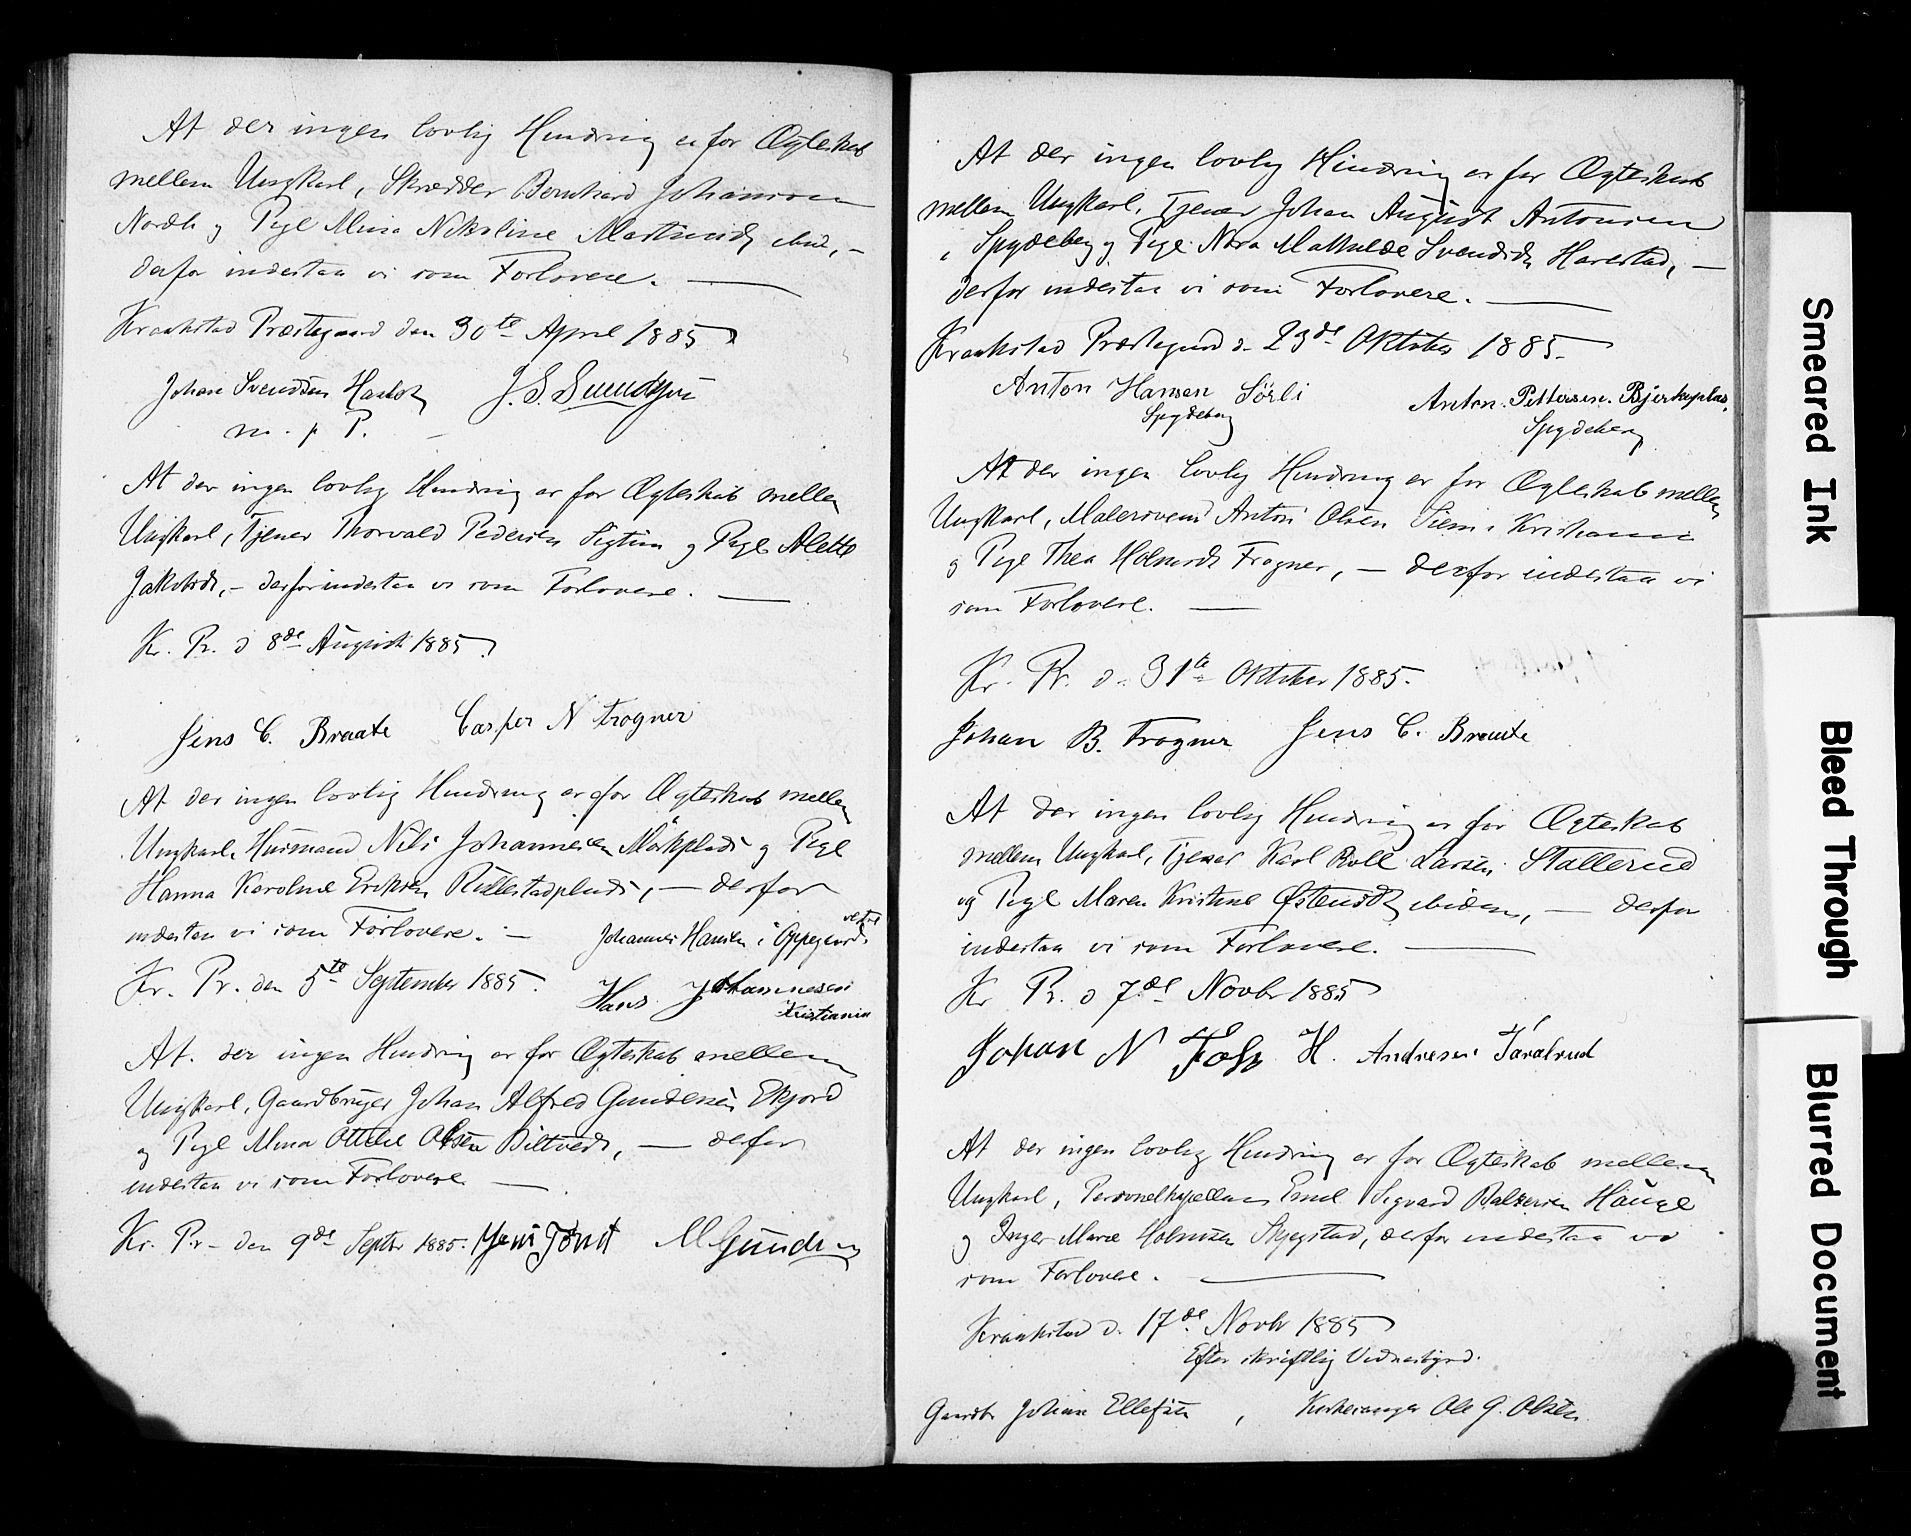 At der ingen lovlig Hindring er for Ægteskab
mellem Ungkarl, Skrædder Bernhard Johannsen
Nordb og Pige Mina Nikoline Martinsdt, ibid, —
derfor indestaa vi som Forlovere. —
Kraakstad Præstegaard den 30te April 1885
Johan Svendsen J. S.
m. p. P.
At der ingen lovlig Hindring er for Ægteskab mellem
Ungkarl, Tjener Thorvald Pedersen og Pige Alette
Jakobsdt, — derfor indestaa vi som Forlovere. —
Kr. Pr. d 8de August 1885.
Jens C. Braate Casper N Frogner
At der ingen lovlig Hindring er for Ægteskab mellem
Ungkarl, Husmand Nils Johannesen Mörkplads og Pige
Hanna Karoline Eriksen, — derfor
indestaa vi som Forlovere. — Johannes Hansen i Oppegaard vestre
Kr. Pr. den 5te September 1885. Hans Johannesen
Kristiania
At. der ingen Hindring er for Ægteskab mellem
Ungkarl, Gaardbruger Johan Alfred Gundersen Ekjord
og Pige Mina Ottilie Olsen Biltvedt, — derfor
indestaa vi som Forlovere —
Kr. Pr. den 9de Septbr 1885. M Gundersen
At der ingen lovlig Hindring er for Ægteskab
mellem Ungkarl, Tjener Johan August Antonsen
i Spydeberg og Pige Nora Mathilde Svendsdt Harestad, —
derfor indestaa vi som Forlovere. —
Kraakstad Præstegaard d. 23de Oktober 1885.
Anton Hansen Sörli Anton. Pettersen. Bjerkeplas,
Spydeberg Spydeberg
At der ingen lovlig Hindring er for Ægteskab mellem
Ungkarl, Malersvend Anton Olsen Siem i Kristiania
og Pige Thea Holmsdt Frogner, — derfor indestaa vi
som Forlovere. —
Kr. Pr. d. 31te Oktober 1885.
Johan B. Frogner Jens C. Braate
At der ingen lovlig Hindring er for Ægteskab
mellem Ungkarl, Tjener Karl Larsen Stallerud
og Pige Maren Kristine Østensdt, ibidem, — derfor
indestaa vi som Forlovere. —
Kr Pr. d 7de Novbr 1885
Johan N Foss H. Andresen Taralrud
At der ingen lovlig Hindring er for Ægteskab mellem
Ungkarl, Personelkapellan Emil Sigvard Balzersen Hauge
og Inger Marie Holmsen Skjegstad, derfor indestaa vi
som Forlovere. —
Kraakstad d. 17de Novbr 1885
Efter skriftlig Vidnesbyrd.
Gaardbr Johan Ellefsen, Kirkesanger Ole G. Olsen
Smeared Ink
Bleed Through
Blurred Document